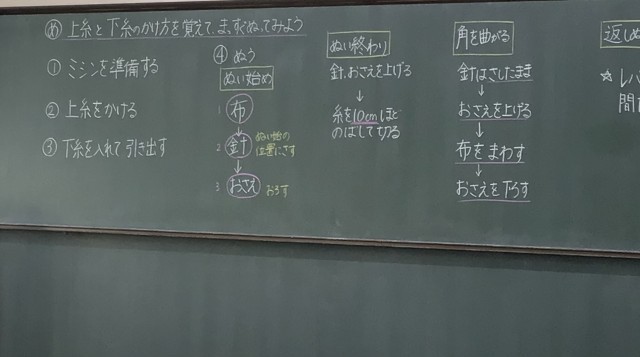 め 上糸と下糸のかけ方を覚えて、まっすぐぬってみよう
① ミシンを準備する
② 上糸をかける
③ 下糸を入れて引き出す
④ ぬう
ぬい始め
1 布
2 針 ぬい始めの
位置にさす
↓
3 おさえ おろす
ぬい終わり
針、おさえを上げる
↓
糸を10cmほど
のばして切る
角を曲がる
針はさしたまま
↓
おさえを上げる
↓
布をまわす
↓
おさえを下ろす
返しぬ
☆ レバ
間